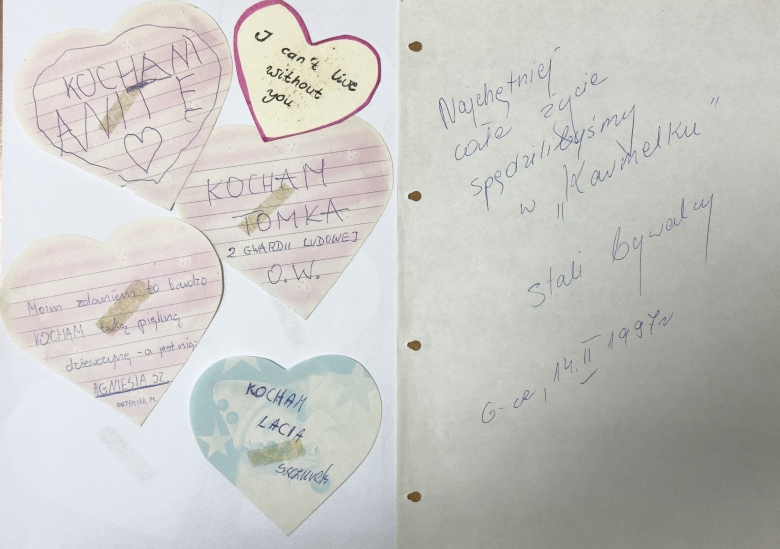 KOCHAM
ANITĘ
I can't live
without
you
KOCHAM
TOMKA
Z GWARDII LUDOWEJ
O.W.
Moim zdaniem to bardzo
KOCHAM taką piękną
dziewczynę - a jest nią:
AGNIESIA SZ.
KOCHAM
LACIA
szczurek
Najchętniej
całe życie
spędzilibyśmy
w „Karmelku”
Stali bywalcy
G-ce, 14.II 1997r